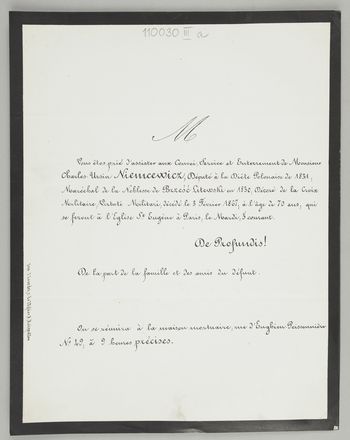 110030 III a
M
Vous êtes prié d'assister aux Convoi, Service et Enterrement de Monsieur
Charles Ursin Niemcewicz, Député à la Diète Polonaise de 1831,
Maréchal de la Noblesse de Brześć-Litewski en 1830, Décoré de la Croix
Militaire, Virtuti Militari, décédé le 3 Février 1867, à l'âge de 70 ans, qui
se feront à l'Eglise St Eugène à Paris, le Mardi, 5 courant.
De Profundis!
De la part de la famille et des amis du défunt.
On se réunira à la maison mortuaire, rue d'Enghien Poissonnière
No 49, à 9 heures précises.